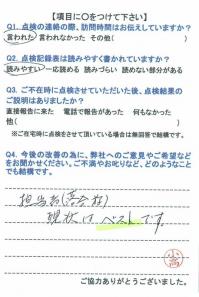 【項目に〇をつけて下さい】
Q1. 点検の連絡の際、訪問時間はお伝えしていますか?
言われた 言われなかった その他( )
Q2. 点検記録表は読みやすく書かれていますか?
読みやすい 一応読める 読みづらい 読めない部分がある
Q3. ご不在時に点検させていただいた後、点検結果の
ご説明はありましたか?
直接報告に来た 電話で報告があった 何もなかった
他( )
※ご在宅時に点検をさせて頂いている場合は無回答で結構です。
Q4. 今後の改善の為に、弊社へのご意見やご希望などを
お聞かせください。ご不満やお叱りなど、どのようなこと
でも結構です。
担当者
現状はベストです。
ご協力ありがとうございました。